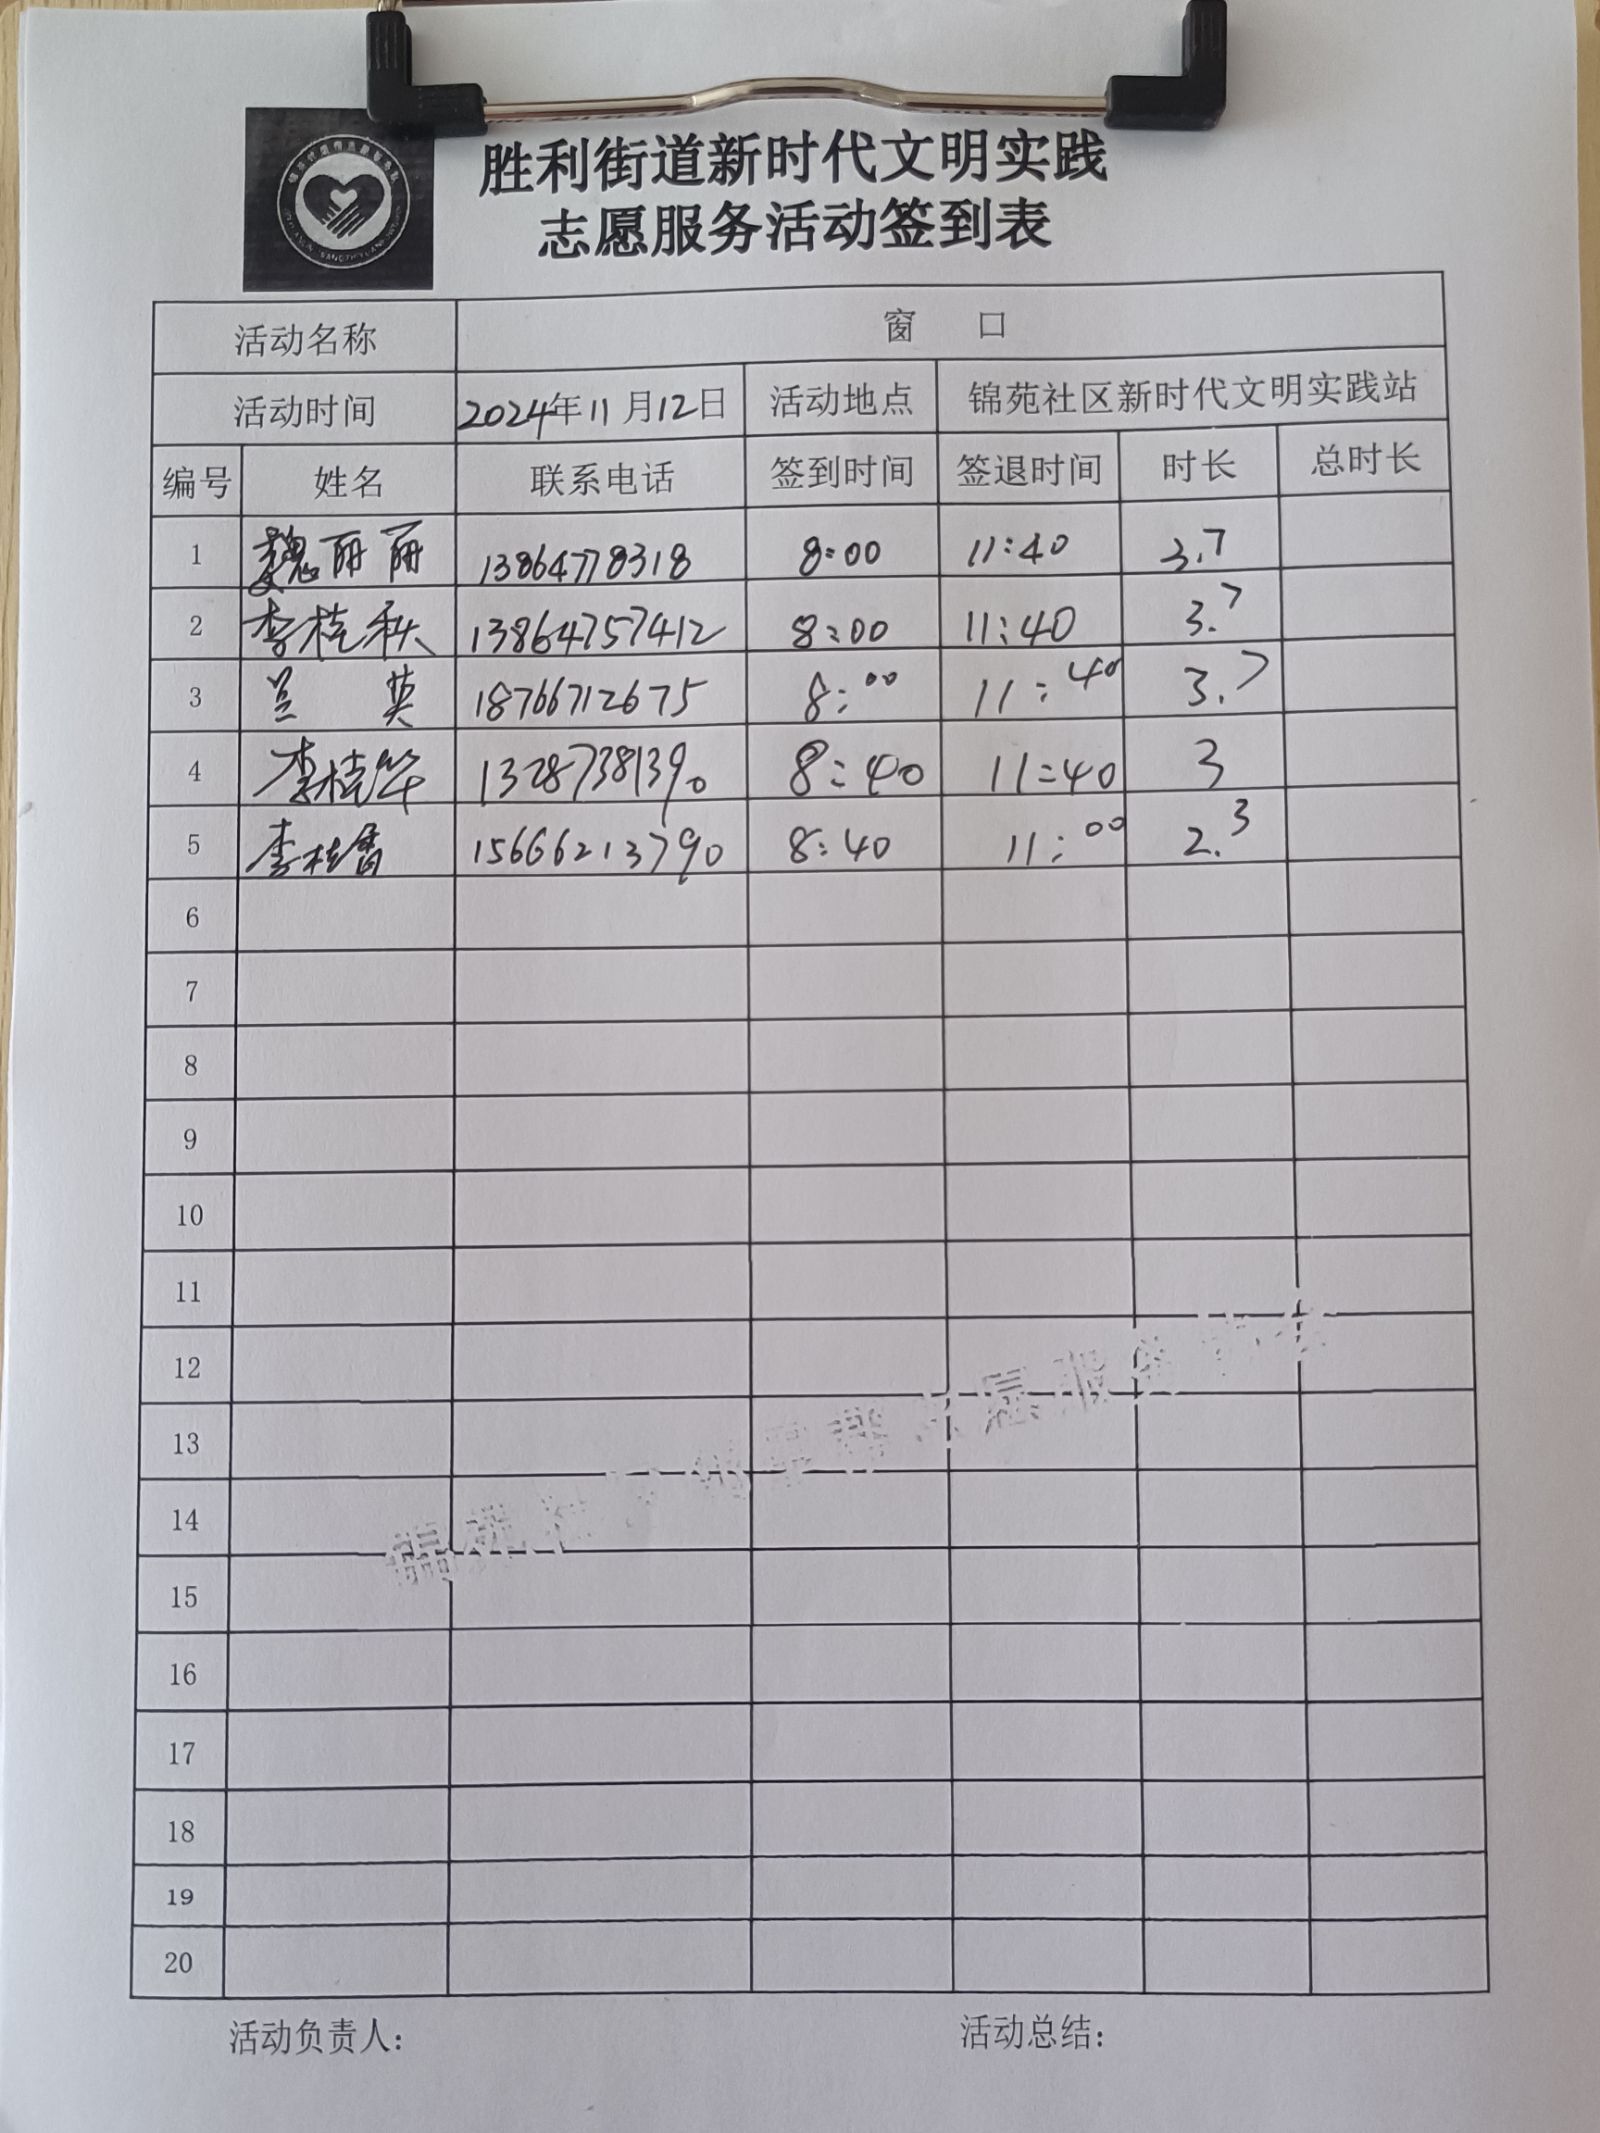 胜利街道新时代文明实践
志愿服务活动签到表
活动名称 窗 口
活动时间 2024年11月12日 活动地点 锦苑社区新时代文明实践站
编号 姓名 联系电话 签到时间 签退时间 时长 总时长
1 魏丽丽 13864778318 8:00 11:40 3.7
2 李桂秋 13864757412 8:00 11:40 3.7
3 兰 英 18766712675 8:00 11:40 3.7
4 李桂华 13287381390 8:40 11:40 3
5 李桂香 15666213790 8:40 11:00 2.3
6
7
8
9
10
11
12
13
14
15
16
17
18
19
20
活动负责人: 活动总结: